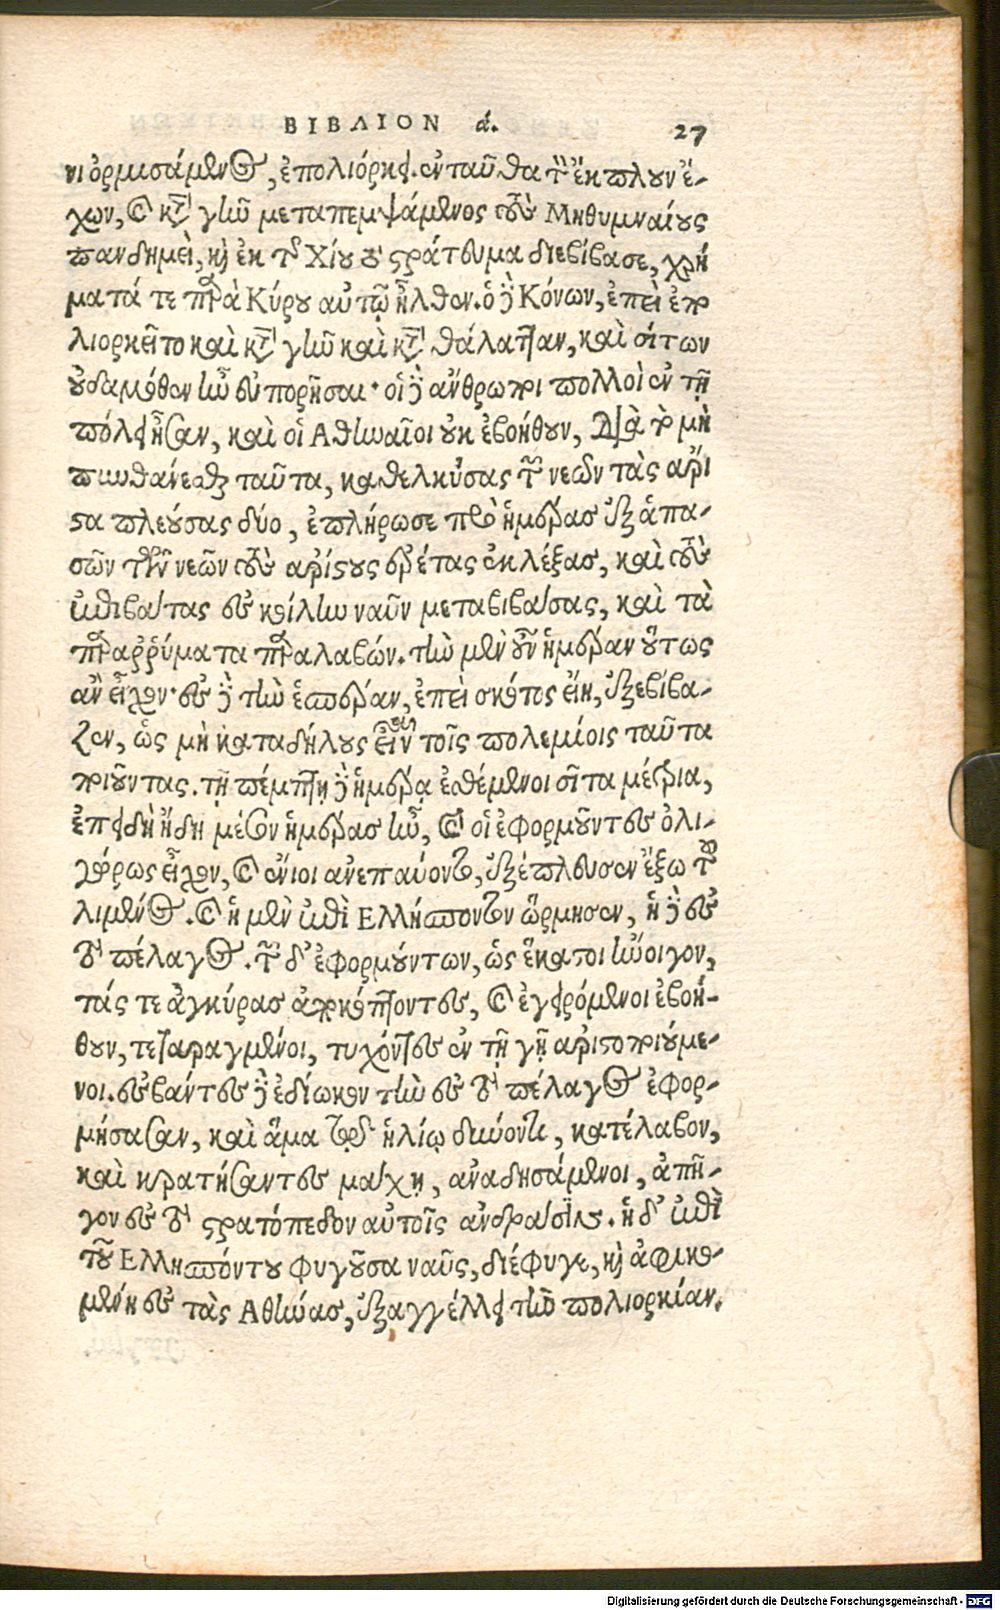 ΒΙΒΛΙΟΝ α΄. 27
νι ὁρμισάμενος, ἐπολιόρκει ἐνταῦθα τὸν ἔκπλουν ἔ-
χων, καὶ κατὰ γῆν μεταπεμψάμενος τοὺς Μηθυμναίους
πανδημεὶ, καὶ ἐκ τῆς Χίου τὸ στράτευμα διεβίβασε, χρή
ματά τε παρὰ Κύρου αὐτῷ ἦλθεν. ὁ δὲ Κόνων, ἐπεὶ ἐπο
λιορκεῖτο καὶ κατὰ γῆν καὶ κατὰ θάλατταν, καὶ σίτων
οὐδαμόθεν ἦν εὐπορῆσαι· οἱ δὲ ἄνθρωποι πολλοὶ ἐν τῇ
πόλει ἦσαν, καὶ οἱ Ἀθηναῖοι οὐκ ἐβοήθουν, διὰ τὸ μὴ
πυνθάνεσθαι ταῦτα, καθελκύσας τῶν νεῶν τὰς ἄρι
στα πλεούσας δύο, ἐπλήρωσε πρὸ ἡμέρας ἐξ ἁπα-
σῶν τῶν νεῶν τοὺς ἀρίστους ἐρέτας ἐκλέξας, καὶ τοὺς
ἐπιβάτας εἰς κοίλην ναῦν μεταβιβάσας, καὶ τὰ
παραῤῥύματα παραλαβών. τὴν μὲν οὖν ἡμέραν οὕτως
ἂν εἶχον· εἰς δὲ τὴν ἑσπέραν, ἐπεὶ σκότος εἴη, ἐξεβίβα-
ζεν, ὡς μὴ καταδήλους εἶναι τοῖς πολεμίοις ταῦτα
ποιοῦντας. τῇ πέμπτῃ δὲ ἡμέρᾳ ἐνθέμενοι σῖτα μέτρια,
ἐπειδὴ ἤδη μέσον ἡμέρας ἦν, καὶ οἱ ἐφορμοῦντες ὀλι-
γώρως εἶχον, καὶ ἔνιοι ἀνεπαύοντο, ἐξέπλευσεν ἔξω τοῦ
λιμένος. καὶ ἡ μὲν ἐπὶ Ἑλλήσποντον ὥρμησεν, ἡ δὲ εἰς
τὸ πέλαγος. τῶν δ᾽ ἐφορμούντων, ὡς ἕκαστοι ἤνοιγον,
τάς τε ἀγκύρας ἀποκόπτοντες, καὶ ἐγειρόμενοι ἐβοή-
θουν, τεταραγμένοι, τυχόντες ἐν τῇ γῇ ἀριστοποιούμε-
νοι. εἰσβάντες δὲ ἐδίωκον τὴν εἰς τὸ πέλαγος ἐφορ-
μήσασαν, καὶ ἅμα τῷ δ᾽ ἡλίῳ δύνοντι, κατέλαβον,
καὶ κρατήσαντες μάχῃ, ἀναδησάμενοι, ἀπῆ-
γον εἰς τὸ στρατόπεδον αὐτοῖς ἀνδράσιν. ἡ δ᾽ ἐπὶ
τοῦ Ἑλλησπόντου φυγοῦσα ναῦς, διέφυγε, καὶ ἀφικο-
μένη εἰς τὰς Ἀθήνας, ἐξαγγέλλει τὴν πολιορκίαν.
Digitalisierung gefördert durch die Deutsche Forschungsgemeinschaft - DFG